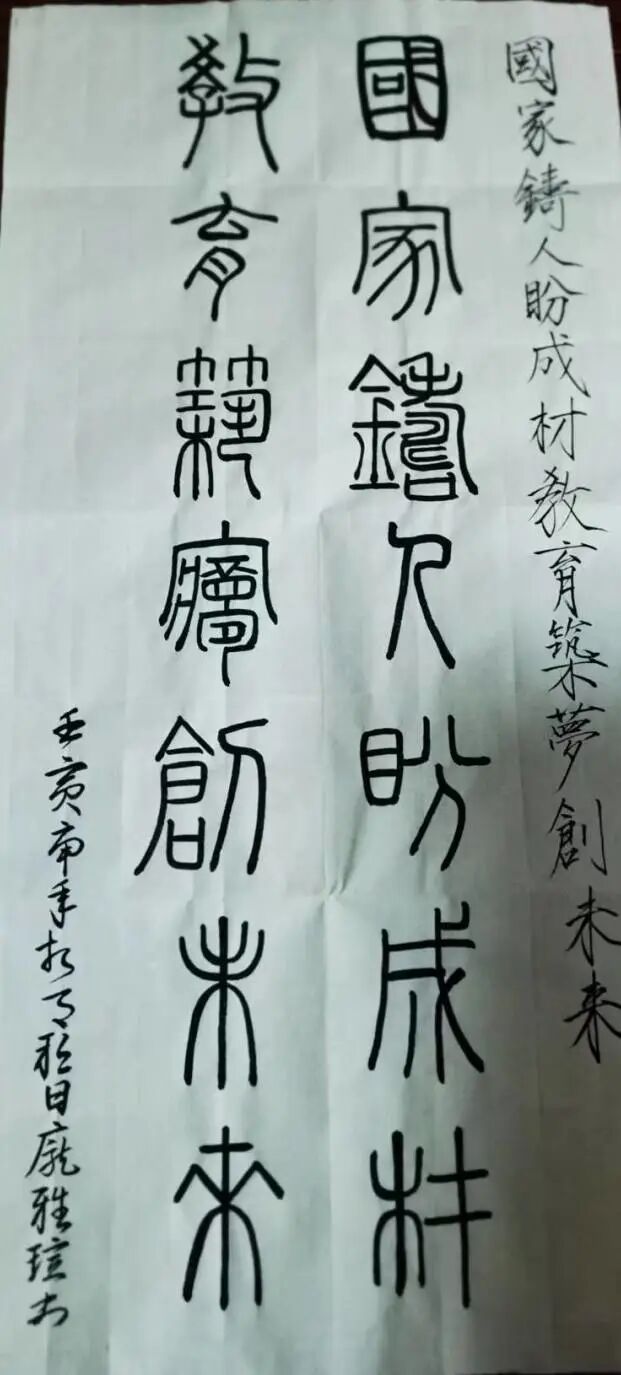 國家鑄人盼成材教育築夢創未来
國家鑄人盼成材
教育築夢創未來
壬寅年 日龐雅瑄书